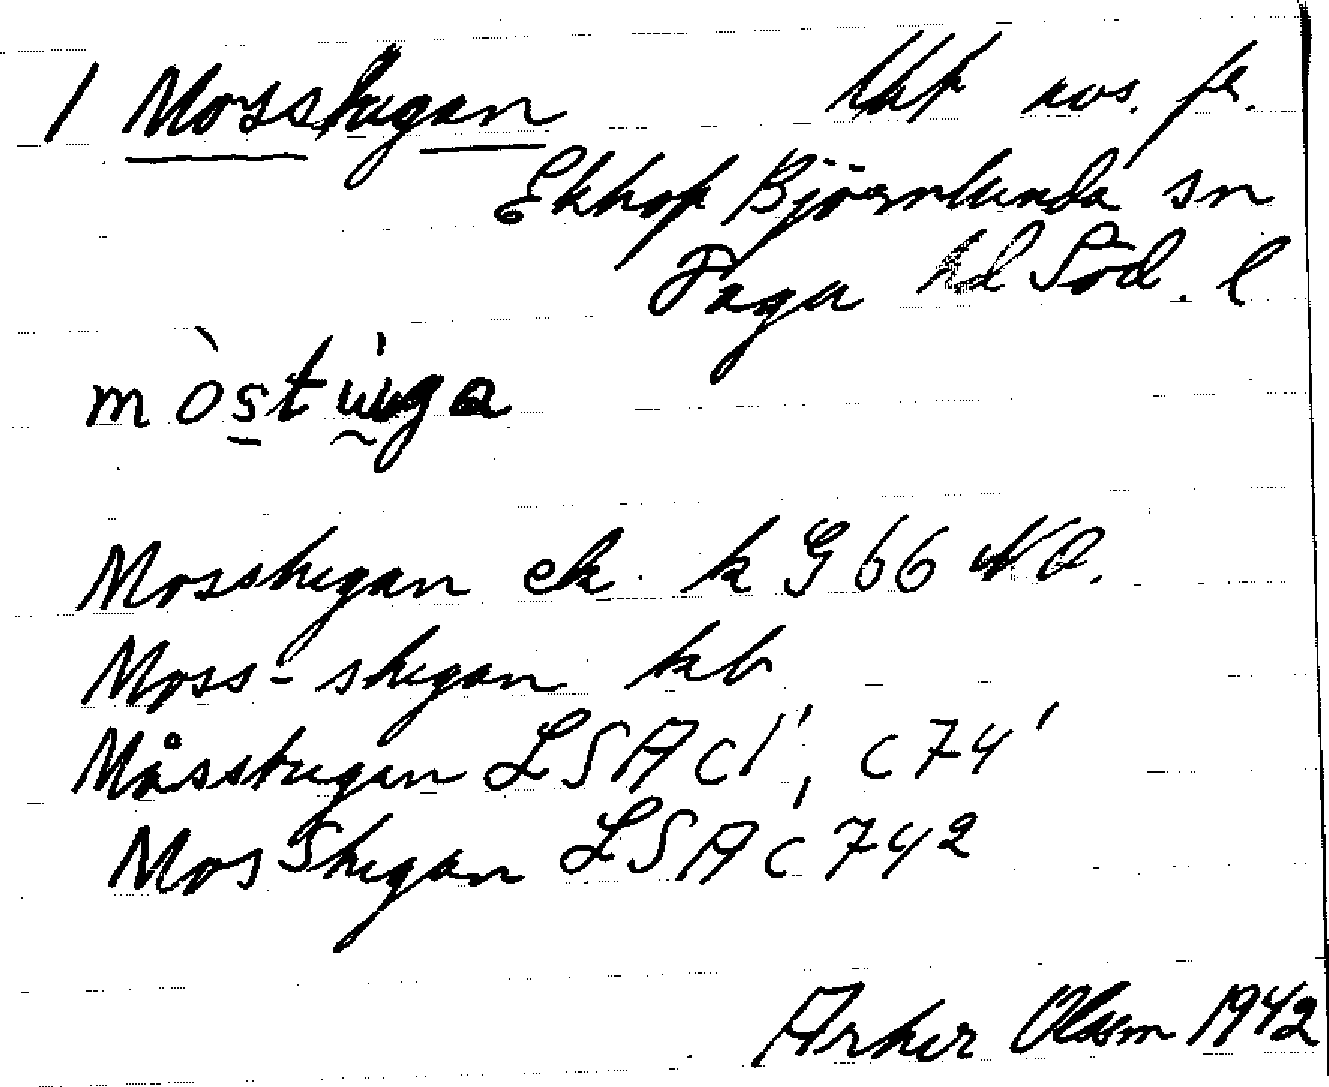 1 Mosstugan lht
Ekhof Björnlunda sn
Daga hd Söd. l
mòstu̇ga
Mosstugan ek. k G 66 NO.
Moss-stugan kb
Måsstugan LSA C1', C74'
Mos Stugan LSA C74 2
Olsson 1942